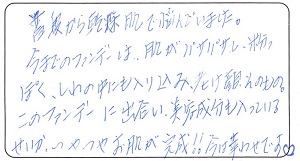 昔から乾燥肌で悩んでいました。
今までのファンデーは、肌がバサバサし、粉っ
ぽく、しわの中にも入り込み、老け顔そのもの。
このファンデーに出会い、美容成分も入っている
せいか、つやつやお肌が完成!!今は幸せです♡